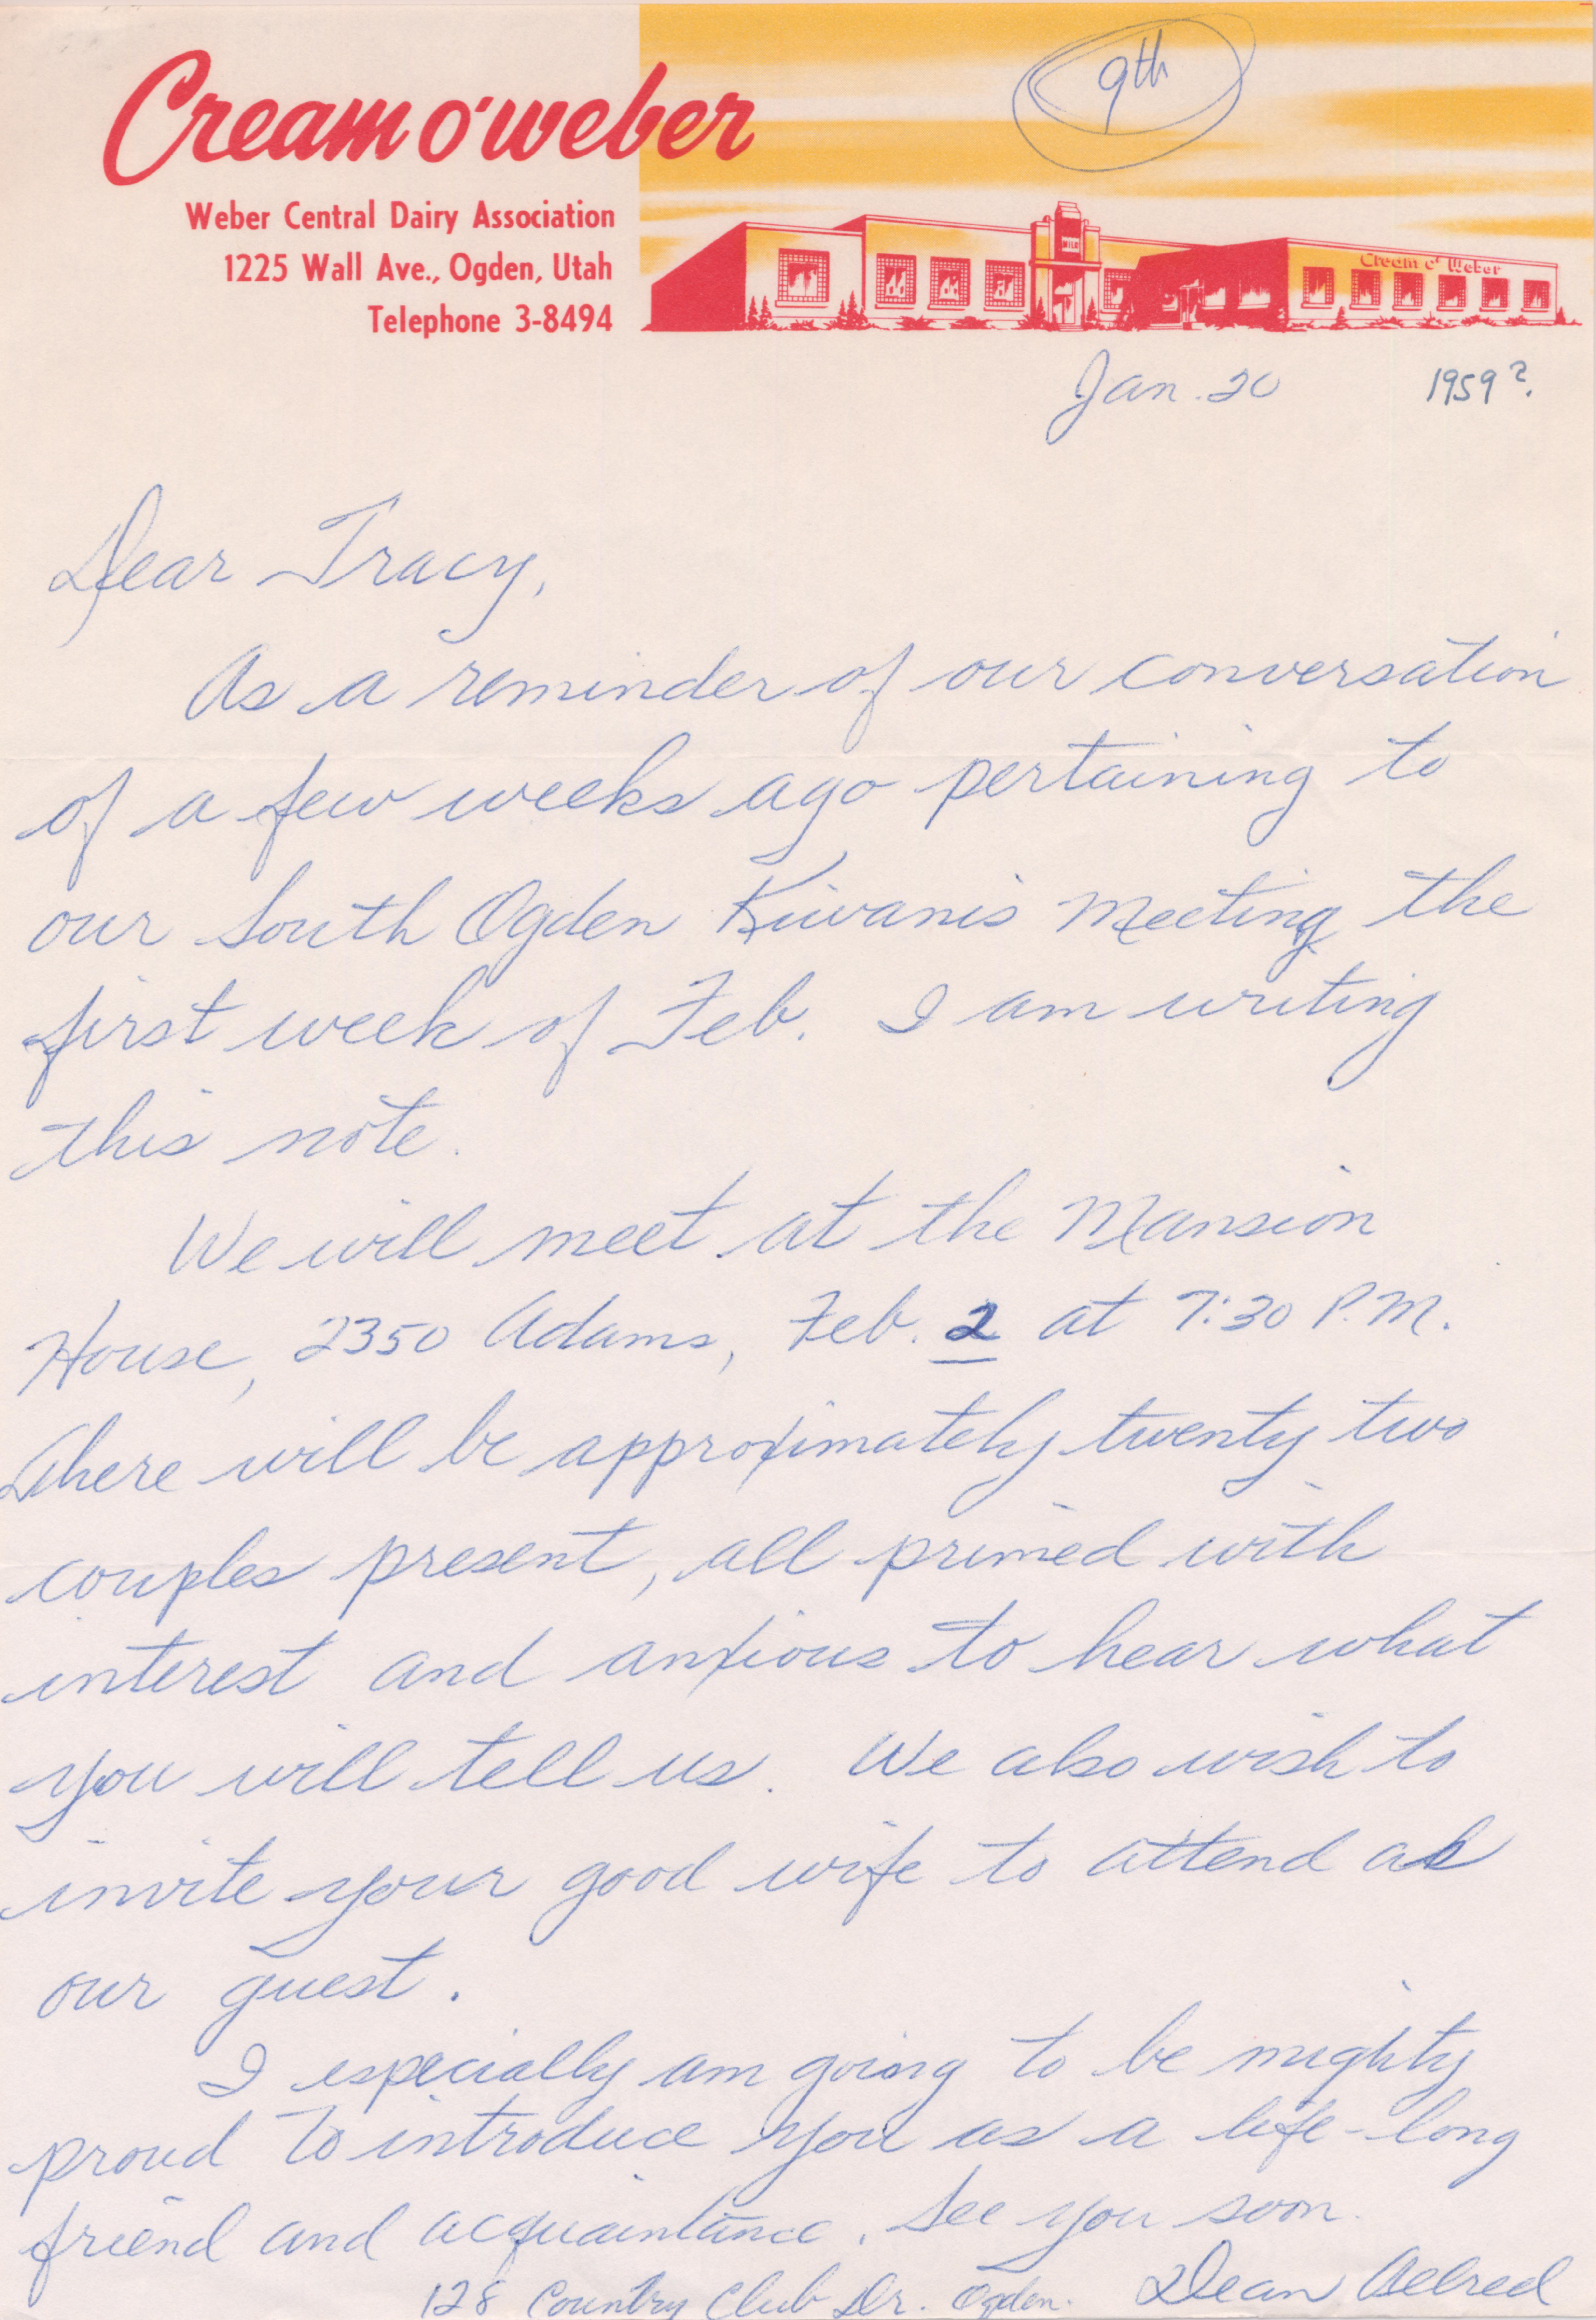 9th
Cream o'weber
Weber Central Dairy Association
1225 Wall Ave., Ogden, Utah
Telephone 3-8494
MILK
Cream o' Weber
Jan. 20 1959?
Dear Tracy,
As a reminder of our conversation
of a few weeks ago pertaining to
our South Ogden Kiwanis Meeting the
first week of Feb. I am writing
this note.
We will meet at the Mansion
House, 2350 Adams, Feb. 2 at 7:30 P.M.
There will be approximately twenty two
couples present, all primed with
interest and anxious to hear what
you will tell us. We also wish to
invite your good wife to attend as
our guest.
I especially am going to be mighty
proud to introduce you as a life-long
friend and acquaintance. See you soon.
128 Country Club Dr. Ogden. Dean Aelred